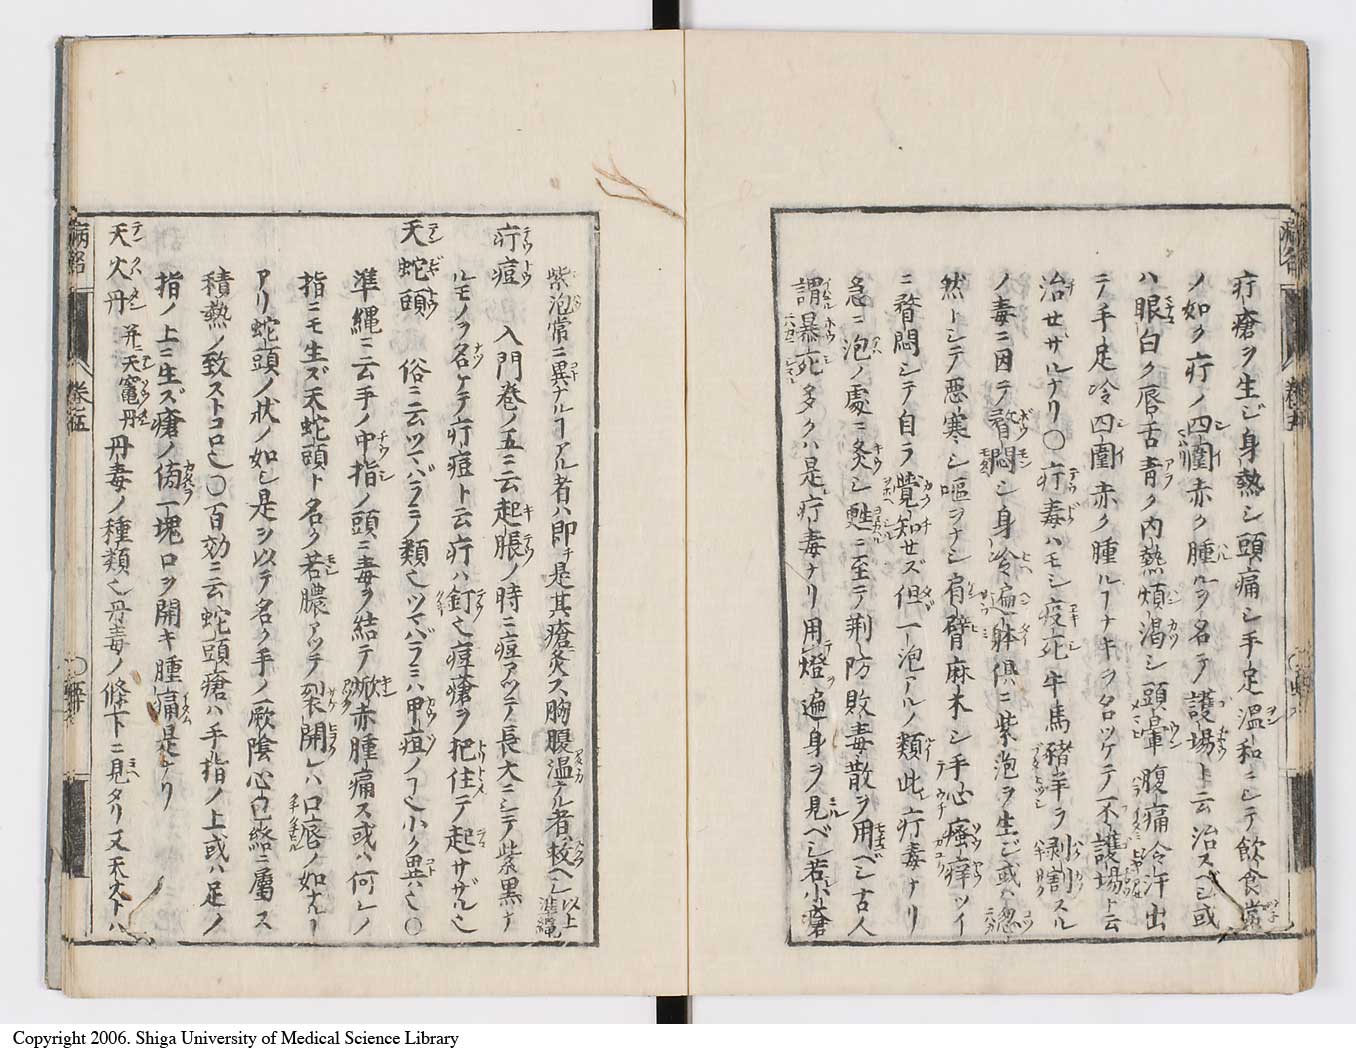 疔瘡ヲ生ジ身熱シ頭痛シ手足温和ニシテ飲食常
ノ如ク疔ノ四圍赤ク腫ルヲ名テ護場ト云治スベシ或
ハ眼白ク唇舌青ク内熱煩渇シ頭暈腹痛冷汗出
テ手足冷四圍赤ク腫ルヿナキヲ名ツケテ不護場ト云
治セザルナリ〇疔毒ハモシ疫死牛馬豬羊ヲ剥割スル
ノ毒ニ因テ瞀悶シ身冷遍躰倶ニ紫泡ヲ生ジ或ハ忽
然トシテ悪寒シ嘔ヲナシ肩臂麻木シ手心瘙痒ツイ
ニ瞀悶シテ自ラ覺知セズ但一泡アルノ類此レ疔毒ナリ
急ニ泡ノ處ニ灸シ甦ニ至テ荊防敗毒散ヲ用ベシ古人
謂暴死多クハ是レ疔毒ナリ用燈遍身ヲ見ベシ若小瘡
紫泡常ニ異ナルヿアル者ハ即チ是其瘡灸ス胸腹温ナル者ハ較ベシ以上準縄
疔痘 入門巻ノ五ニ云起脹ノ時ニ痘アツテ長大ニシテ紫黒ナ
ルモノヲ名ケテ疔痘ト云疔ハ釘也痘瘡ヲ把住テ起サザル也
天蛇頭 俗ニ云ツマバラミノ類也ツマバラミハ甲疽ノヿ也小ク異ハ也〇
準縄ニ云手ノ中指ノ頭ニ毒ヲ結テ焮赤腫痛ス或ハ何レノ
指ニモ生ズ天蛇頭ト名ク若膿アツテ裂開レハ口唇ノ如ナルヿ
アリ蛇頭ノ状ノ如シ是ヲ以テ名ク手ノ厥陰心包絡ニ屬ス
積熱ノ致ストコロ也〇百効ニ云蛇頭瘡ハ手指ノ上或ハ足ノ
指ノ上ニ生ズ瘡ノ傍一塊口ヲ開キ腫痛是ナリ
天火丹 并ニ天竈丹 丹毒ノ種類也丹毒ノ條下ニ見タリ又天火トハ
病名
巻五
Copyright 2006. Shiga University of Medical Science Library